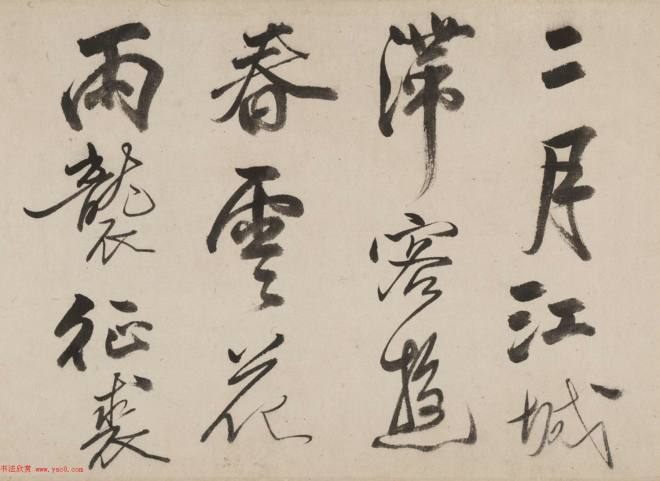 二月江城
滞客遊
春雲花
雨襲征裘
书法欣赏 www.yac8.com